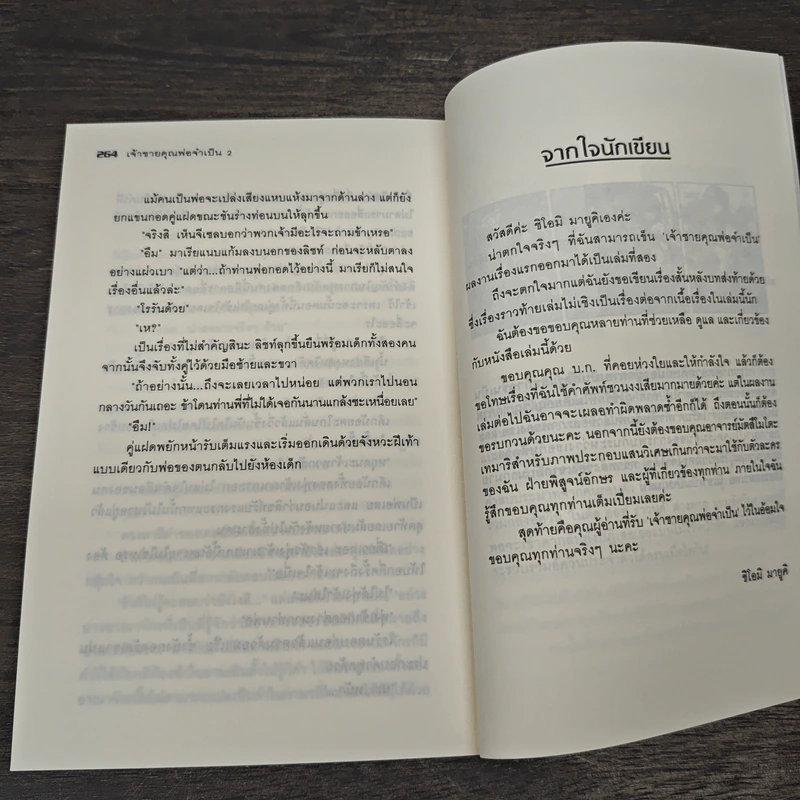 264 เจ้าชายคุณพ่อจำเป็น 2
แม้คนเป็นพ่อจะเปล่งเสียงแหบแห้งมาจากด้านล่าง แต่ก็ยัง
ยกแขนกอดคู่แฝดขณะชันร่างท่อนบนให้ลุกขึ้น
"จริงสิ เห็นจีเซลบอกว่าพวกเจ้ามีอะไรจะถามข้าเหรอ"
"อืม" มาเรียแนบแก้มลงบนอกของลิชท์ ก่อนจะหลับตาลง
อย่างแผ่วเบา "แต่ว่า...ถ้าท่านพ่อกอดไว้อย่างนี้ มาเรียก็ไม่สนใจ
เรื่องอื่นแล้วล่ะ"
"โรรันด้วย"
"เหรอ"
เป็นเรื่องที่ไม่สำคัญสินะ ลิชท์ลุกขึ้นยืนพร้อมเด็กทั้งสองคน
จากนั้นจึงจับทั้งคู่ไว้ด้วยมือซ้ายและขวา
"ถ้าอย่างนั้น...ถึงจะเลยเวลาไปหน่อย แต่พวกเราไปนอน
กลางวันกันเถอะ ข้าโดนท่านพี่ที่ไม่ได้เจอกันนานแกล้งซะเหนื่อยเลย"
"อืม!"
คู่แฝดพยักหน้ารับเต็มแรงและเริ่มออกเดินด้วยจังหวะฝีเท้า
แบบเดียวกับพ่อของตนกลับไปยังห้องเด็ก
จากใจนักเขียน
สวัสดีค่ะ ชิโอมิ มายูคิเองค่ะ
น่าตกใจจริงๆ ที่ฉันสามารถเข็น 'เจ้าชายคุณพ่อจำเป็น'
ผลงานเรื่องแรกออกมาได้เป็นเล่มที่สอง
ถึงจะตกใจมากแต่ฉันยังขอเขียนเรื่องสั้นหลังบทส่งท้ายด้วย
ซึ่งเรื่องราวท้ายเล่มไม่เชิงเป็นเรื่องต่อจากเนื้อเรื่องในเล่มนี้นัก
ฉันต้องขอขอบคุณหลายท่านที่ช่วยเหลือ ดูแล และเกี่ยวข้อง
กับหนังสือเล่มนี้ด้วย
ขอบคุณคุณ บ.ก. ที่คอยห่วงใยและให้กำลังใจ แล้วก็ต้อง
ขอโทษเรื่องที่ฉันใช้คำศัพท์ชวนงงเสียมากมายด้วยค่ะ แต่ในผลงาน
เล่มต่อไปฉันอาจจะเผลอทำผิดพลาดซ้ำอีกก็ได้ ถึงตอนนั้นก็ต้อง
ขอรบกวนด้วยนะคะ นอกจากนี้ยังต้องขอบคุณอาจารย์มัตสึโมโตะ
เทมาริสำหรับภาพประกอบแสนวิเศษเกินกว่าจะมาใช้กับตัวละคร
ของฉัน ฝ่ายพิสูจน์อักษร และผู้ที่เกี่ยวข้องทุกท่าน ภายในใจฉัน
รู้สึกขอบคุณทุกท่านเต็มเปี่ยมเลยค่ะ
สุดท้ายคือคุณผู้อ่านที่รับ 'เจ้าชายคุณพ่อจำเป็น' ไว้ในอ้อมใจ
ขอบคุณทุกท่านจริงๆ นะคะ
ชิโอมิ มายูคิ